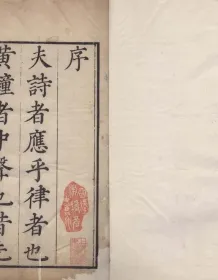 序
夫詩者應乎律者也
黃鐘者中聲也昔先